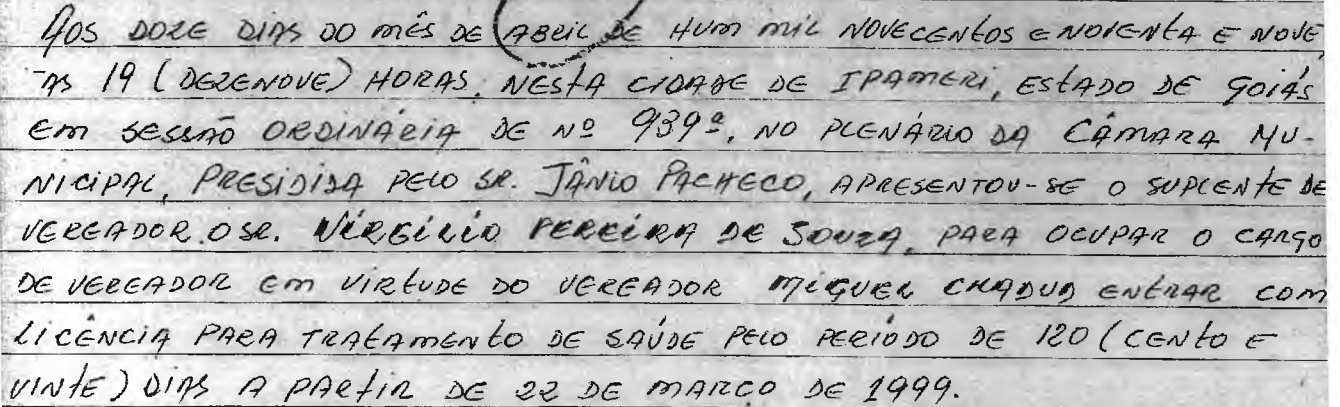 Aos DOZE DIAS DO MÊS DE ABRIL DE HUM MIL NOVECENTOS E NOVENTA E NOVE
AS 19 (DEZENOVE) HORAS, NESTA CIDADE DE IPAMERI, ESTADO DE GOIÁS
EM SESSÃO ORDINÁRIA DE Nº 939ª, NO PLENÁRIO DA CÂMARA MU-
NICIPAL, PRESIDIDA PELO SR. JÂNIO PACHECO, APRESENTOU-SE O SUPLENTE DE
VEREADOR O SR. VIRGÍLIO PEREIRA DE SOUZA, PARA OCUPAR O CARGO
DE VEREADOR EM VIRTUDE DO VEREADOR MIGUEL CHADUD ENTRAR COM
LICÊNCIA PARA TRATAMENTO DE SAÚDE PELO PERÍODO DE 120 (CENTO E
VINTE) DIAS A PARTIR DE 22 DE MARCO DE 1999.